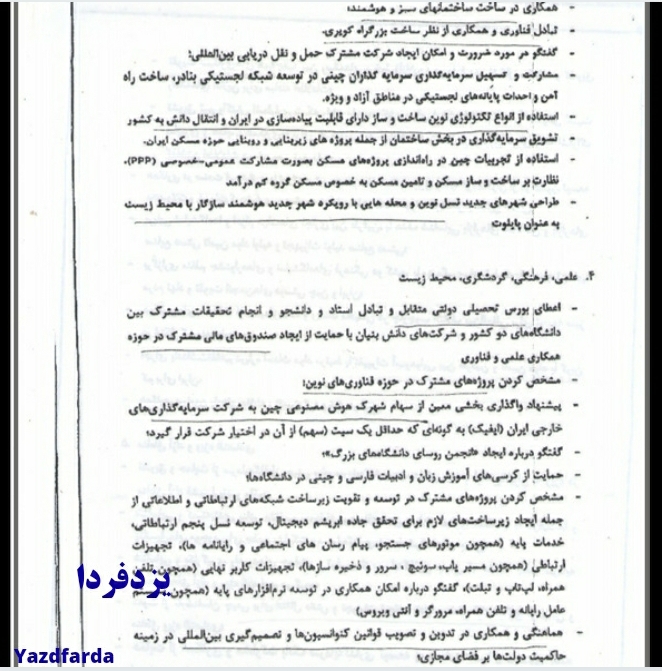 - همکاری در ساخت ساختمانهای سبز و هوشمند؛
- تبادل فناوری و همکاری از نظر ساخت بزرگراه کویری.
- گفتگو در مورد ضرورت و امکان ایجاد شرکت مشترک حمل و نقل دریایی بین‌المللی؛
- مشارکت و تسهیل سرمایه‌گذاری سرمایه گذاران چینی در توسعه شبکه لجستیکی بنادر، ساخت راه
آهن و احداث پایانه‌های لجستیکی در مناطق آزاد و ویژه.
- استفاده از انواع تکنولوژی نوین ساخت و ساز دارای قابلیت پیاده‌سازی در ایران و انتقال دانش به کشور
- تشویق سرمایه‌گذاری در بخش ساختمان از جمله پروژه های زیربنایی و روبنایی حوزه مسکن ایران.
- استفاده از تجربیات چین در راه‌اندازی پروژه‌های مسکن بصورت مشارکت عمومی-خصوصی (PPP)،
نظارت بر ساخت و ساز مسکن و تامین مسکن به خصوص مسکن گروه کم درآمد
- طراحی شهرهای جدید نسل نوین و محله هایی با رویکرد شهر جدید هوشمند سازگار با محیط زیست
به عنوان پایلوت
۴. علمی، فرهنگی، گردشگری، محیط زیست
- اعطای بورس تحصیلی دولتی متقابل و تبادل استاد و دانشجو و انجام تحقیقات مشترک بین
دانشگاه‌های دو کشور و شرکت‌های دانش بنیان با حمایت از ایجاد صندوق‌های مالی مشترک در حوزه
همکاری علمی و فناوری
- مشخص کردن پروژه‌های مشترک در حوزه فناوری‌های نوین؛
- پیشنهاد واگذاری بخشی معین از سهام شهرک هوش مصنوعی چین به شرکت سرمایه‌گذاری‌های
خارجی ایران (ایفیک) به گونه‌ای که حداقل یک سیت (سهم) از آن در اختیار شرکت قرار گیرد؛
- گفتگو درباره ایجاد «انجمن روسای دانشگاه‌های بزرگ»؛
- حمایت از کرسی‌های آموزش زبان و ادبیات فارسی و چینی در دانشگاه‌ها؛
- مشخص کردن پروژه‌های مشترک در توسعه و تقویت زیرساخت شبکه‌های ارتباطاتی و اطلاعاتی از
جمله ایجاد زیرساخت‌های لازم برای تحقق جاده ابریشم دیجیتال، توسعه نسل پنجم ارتباطاتی،
خدمات پایه (همچون موتورهای جستجو، پیام رسان های اجتماعی و رایانامه ها)، تجهیزات
ارتباطی (همچون مسیر یاب، سوئیچ ، سرور و ذخیره سازها)، تجهیزات کاربر نهایی (همچون تلفن
همراه، لپ‌تاپ و تبلت)، گفتگو درباره امکان همکاری در توسعه نرم‌افزارهای پایه (همچون سیستم
عامل رایانه و تلفن همراه، مرورگر و آنتی ویروس)
- هماهنگی و همکاری در تدوین و تصویب قوانین کنوانسیون‌ها و تصمیم‌گیری بین‌المللی در زمینه
حاکمیت دولت‌ها بر فضای مجازی؛
یزدفردا
Yazdfarda